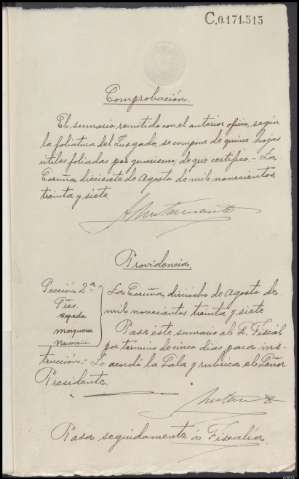 C.0.171.515
Comprobación.
El sumario remitido con el anterior oficio, según
la foliatura del Juzgado se compone de quince hojas
útiles foliadas por guarismo, de que certifico.- La
Coruña diecisiete de Agosto de mil novecientos
treinta y siete
Providencia
Sección 2ª
La Coruña, dieciocho de Agosto de
mil novecientos treinta y siete
Pase este sumario al S. Fiscal
por término de cinco días para ins-
trucción.- Lo acordó la Sala y rubrica el Señor
Presidente.
Pasa seguidamente a Fiscalía